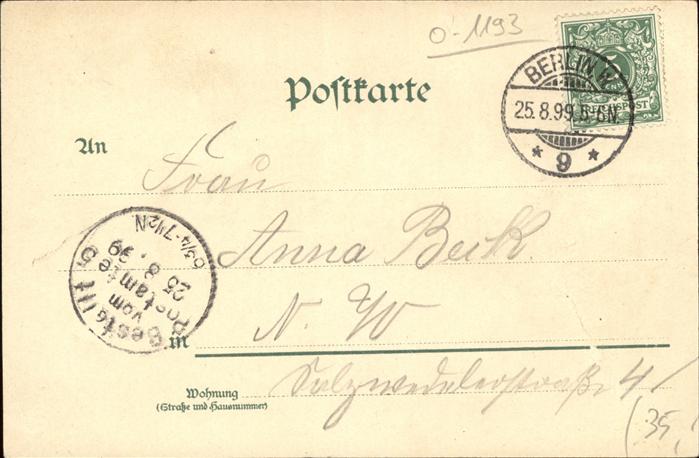 O'-1193
BERLIN W.
25.8.99.5-6N.
* 9 *
REICHSPOST
Postkarte
An
Frau
Anna Beck.
N. W
in
Salzwedelerstraße 4
Wohnung
(Straße und Hausnummer)
(35,
Bestellt
vom
Postamte 5
25
8.
99
6¾-7½N